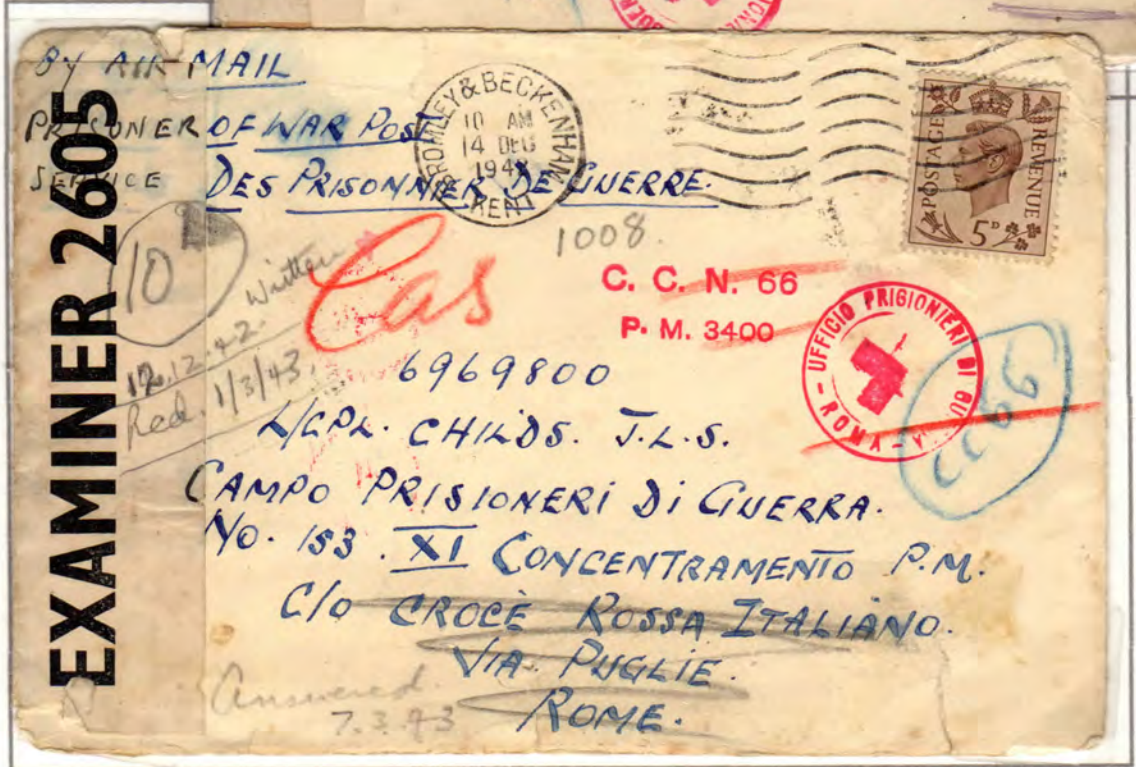 BY AIR MAIL
PRISONER OF WAR POST
SERVICE DES PRISONNIER DE GUERRE.
BROMLEY & BECKENHAM
10 AM
14 DEC
KENT
POSTAGE REVENUE
5D
EXAMINER 2605
10
Written
12.12.42
Recd. 1/3/43.
1008.
Cas
C. C. N. 66
P. M. 3400
UFFICIO PRIGIONIERI DI
ROMA
6969800
L/CPL. CHILDS. J.L.S.
CAMPO PRISIONERI DI GUERRA.
No. 153. XI CONCENTRAMENTO P.M.
C/O CROCÈ ROSSA ITALIANO.
VIA PUGLIE.
ROME.
Answered.
7.3.43